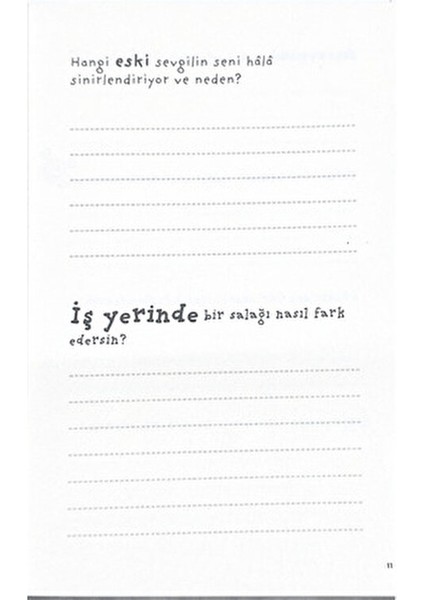 Hangi eski sevgilin seni hâlâ
sinirlendiriyor ve neden?
İş yerinde bir salağı nasıl fark
edersin?
11